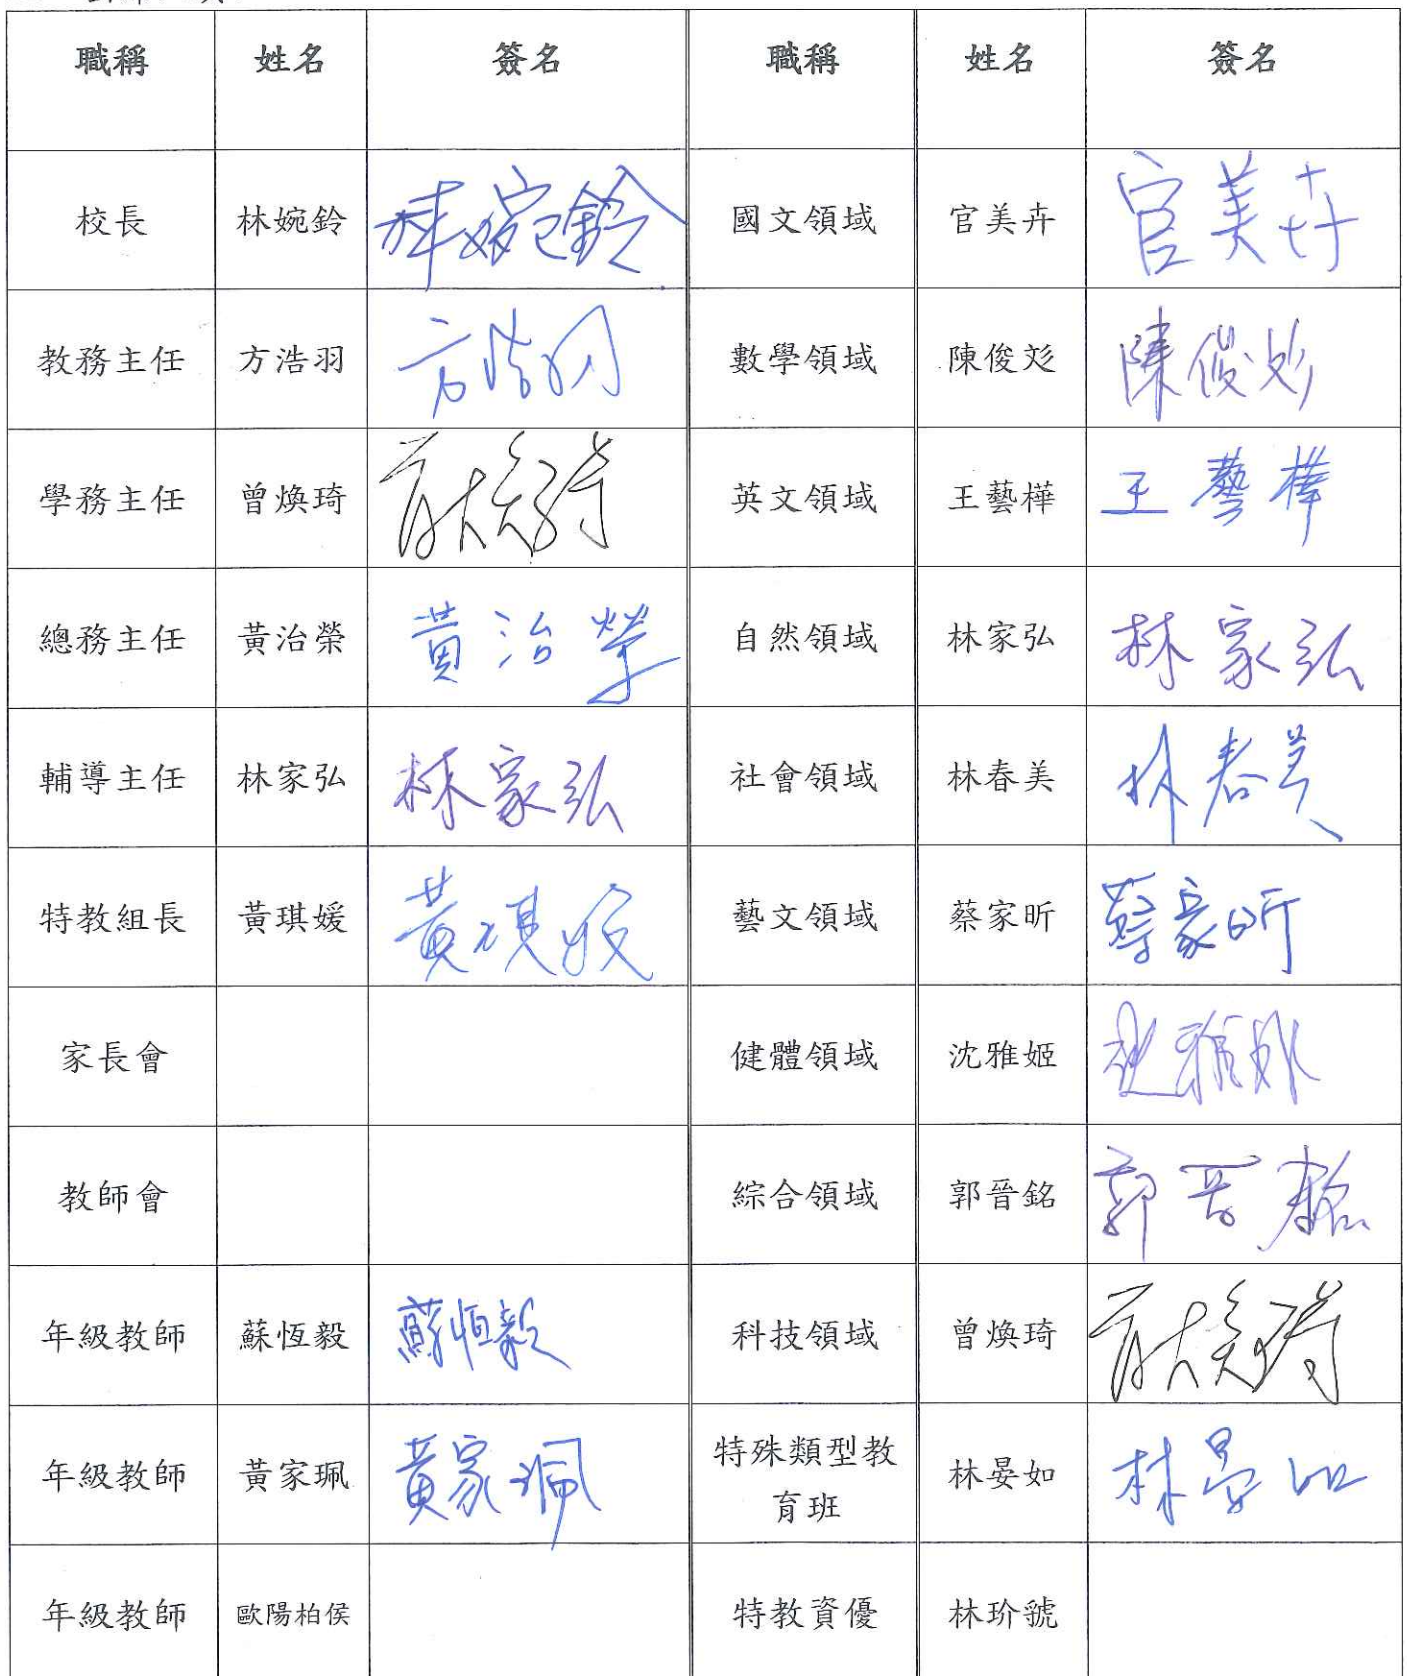 職稱 姓名 簽名 職稱 姓名 簽名
校長 林婉鈴 林婉鈴 國文領域 官美卉 官美卉
教務主任 方浩羽 方浩羽 數學領域 陳俊彣 陳俊彣
學務主任 曾煥琦 曾煥琦 英文領域 王藝樺 王藝樺
總務主任 黃治榮 黃治榮 自然領域 林家弘 林家弘
輔導主任 林家弘 林家弘 社會領域 林春美 林春美
特教組長 黃琪媛 黃琪媛 藝文領域 蔡家昕 蔡家昕
家長會 健體領域 沈雅姬 沈雅姬
教師會 綜合領域 郭晉銘 郭晉銘
年級教師 蘇恆毅 蘇恆毅 科技領域 曾煥琦 曾煥琦
年級教師 黃家珮 黃家珮 特殊類型教 林晏如 林晏如
育班
年級教師 歐陽柏侯 特教資優 林玠虢